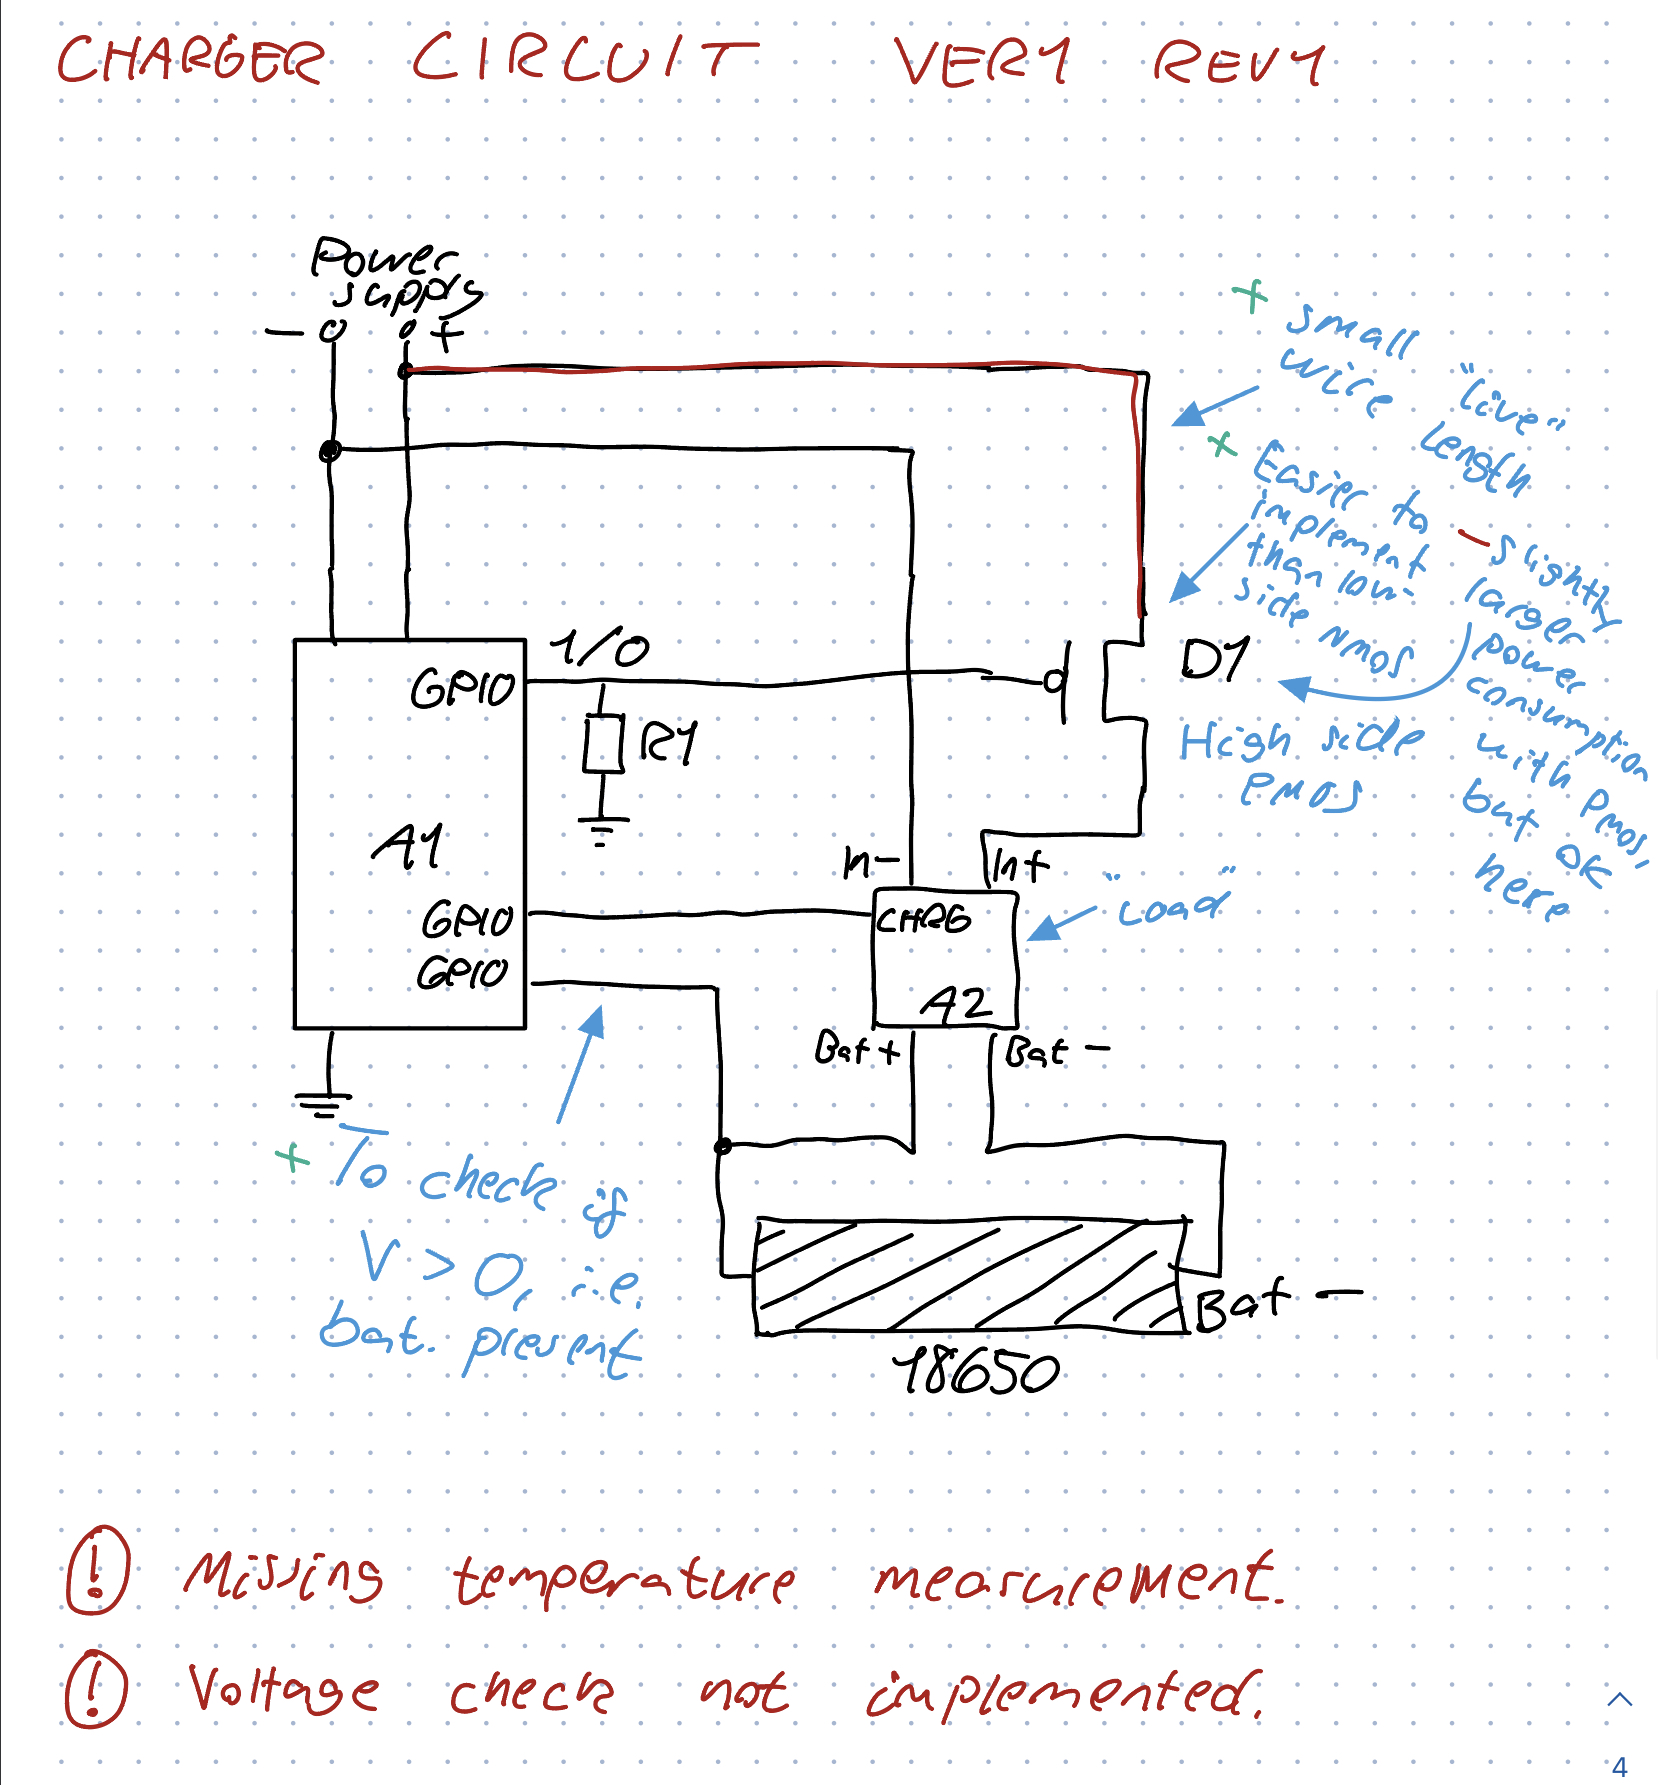 CHARGER CIRCUIT VER1 REV1
Power
supply
- +
+ small
wire "live"
length
+ Easier to
implement
than low-
side NMOS
- slightly
larger
power
consumption
with PMOS,
but OK
here
GPIO
1/0
R1
D1
High side
PMOS
A1
In-
In+
"Load"
GPIO
CHRG
GPIO
A2
Bat+
Bat -
+ To check if
V > 0, i.e.
bat. present
Bat -
18650
! Missing temperature measurement.
! Voltage check not implemented.
4